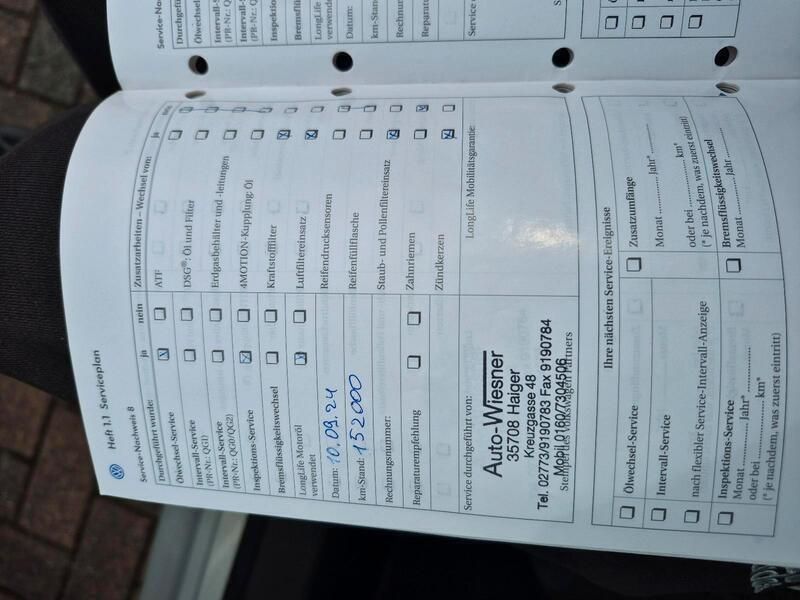 Heft 1.1 Serviceplan
Service-Nachweis 8
Durchgeführt wurde: ja nein
Ölwechsel-Service
Intervall-Service
(PR-Nr.: QG1)
Intervall-Service
(PR-Nr.: QG0/QG2)
Inspektions-Service
Bremsflüssigkeitswechsel
LongLife Motoröl
verwendet
Datum: 10.09.24
km-Stand: 152000
Rechnungsnummer:
Reparaturempfehlung
Zusatzarbeiten – Wechsel von: ja nein
ATF
DSG®: Öl und Filter
Erdgasbehälter und -leitungen
4MOTION-Kupplung: Öl
Kraftstofffilter
Luftfiltereinsatz
Reifendrucksensoren
Reifenfüllflasche
Staub- und Pollenfiltereinsatz
Zahnriemen
Zündkerzen
Service durchgeführt von:
Auto-Wiesner
35708 Haiger
Kreuzgasse 48
Tel. 02773/9190783 Fax 9190784
Mobil 0160/7304506
Stempel des Volkswagen Partners
LongLife Mobilitätsgarantie:
Ihre nächsten Service-Ereignisse
Ölwechsel-Service
Intervall-Service
nach flexibler Service-Intervall-Anzeige
Inspektions-Service
Monat ............. Jahr* .............
oder bei ............. km*
(* je nachdem, was zuerst eintritt)
Zusatzumfänge
Monat ............. Jahr* .............
oder bei ............. km*
(* je nachdem, was zuerst eintritt)
Bremsflüssigkeitswechsel
Monat ............. Jahr .............
Durchgefü
Ölwechsel-S
Intervall-S
(PR-Nr.: QG
Intervall-S
(PR-Nr.: QG
Inspektion
Bremsflüss
LongLife
verwende
Datum:
km-Stand
Rechnung
Reparatur
Service